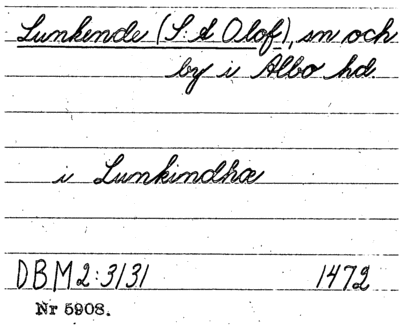 Lunkende (S:t Olof), sn och
by i Albo hd.
i Lunkindhæ
DBM 2:3131 1472
Nr 5908.